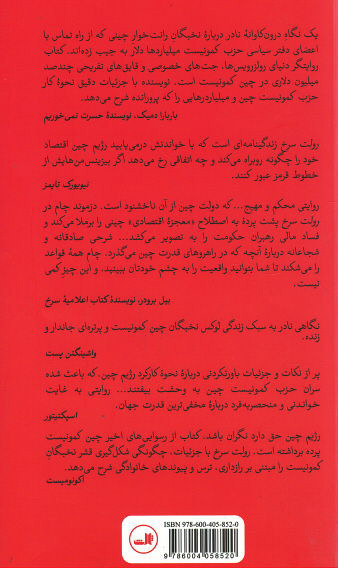 یک نگاهِ درون‌کاوانهٔ نادر دربارهٔ نخبگان رانت‌خوار چینی که از راه تماس با
اعضای دفتر سیاسی حزب کمونیست میلیاردها دلار به جیب زده‌اند. کتاب
روایتگر دنیای رولزرویس‌ها، جت‌های خصوصی و قایق‌های تفریحی چندصد
میلیون دلاری در چین کمونیست است. نویسنده با جزئیات دقیق نحوهٔ کار
حزب کمونیست چین و میلیاردرهایی را که پرورانده شرح می‌دهد.
باربارا دمیک، نویسندهٔ حسرت نمی‌خوریم
رولت سرخ زندگینامه‌ای است که با خواندنش درمی‌یابید رژیم چین اقتصاد
خود را چگونه روبراه می‌کند و چه اتفاقی رخ می‌دهد اگر بیزینس‌من‌هایش از
خطوط قرمز عبور کنند.
نیویورک تایمز
روایتی محکم و مهیج... که دولت چین از آن ناخشنود است. دزموند چام در
رولت سرخ پشت پردهٔ به اصطلاح «معجزهٔ اقتصادی» چینی را برملا می‌کند و
فساد مالی رهبران حکومت را به تصویر می‌کشد... شرحی صادقانه و
شجاعانه دربارهٔ آنچه که در راهروهای قدرت چین می‌گذرد. چام همهٔ قواعد
را می‌شکند تا شما بتوانید واقعیت را به چشم خودتان ببینید. و این چیز کمی
نیست.
بیل برودر، نویسندهٔ کتاب اعلامیهٔ سرخ
نگاهی نادر به سبک زندگی لوکس نخبگان چین کمونیست و پرتره‌ای جاندار و
زنده.
واشینگتن پست
پر از نکات و جزئیات باورنکردنی دربارهٔ نحوهٔ کارکرد رژیم چین، که باعث شده
سران حزب کمونیست چین به وحشت بیفتند... روایتی به غایت
خواندنی و منحصربه‌فرد دربارهٔ مخفی‌ترین قدرت جهان.
اسپکتیتور
رژیم چین حق دارد نگران باشد. کتاب از رسوایی‌های اخیر چین کمونیست
پرده برداشته است. رولت سرخ با جزئیات، چگونگی شکل‌گیری قشر نخبگان
کمونیست را مبتنی بر رازداری، ترس و پیوندهای خانوادگی شرح می‌دهد.
اکونومیست
ISBN 978-600-405-852-0
9 786004 058520
ثالث